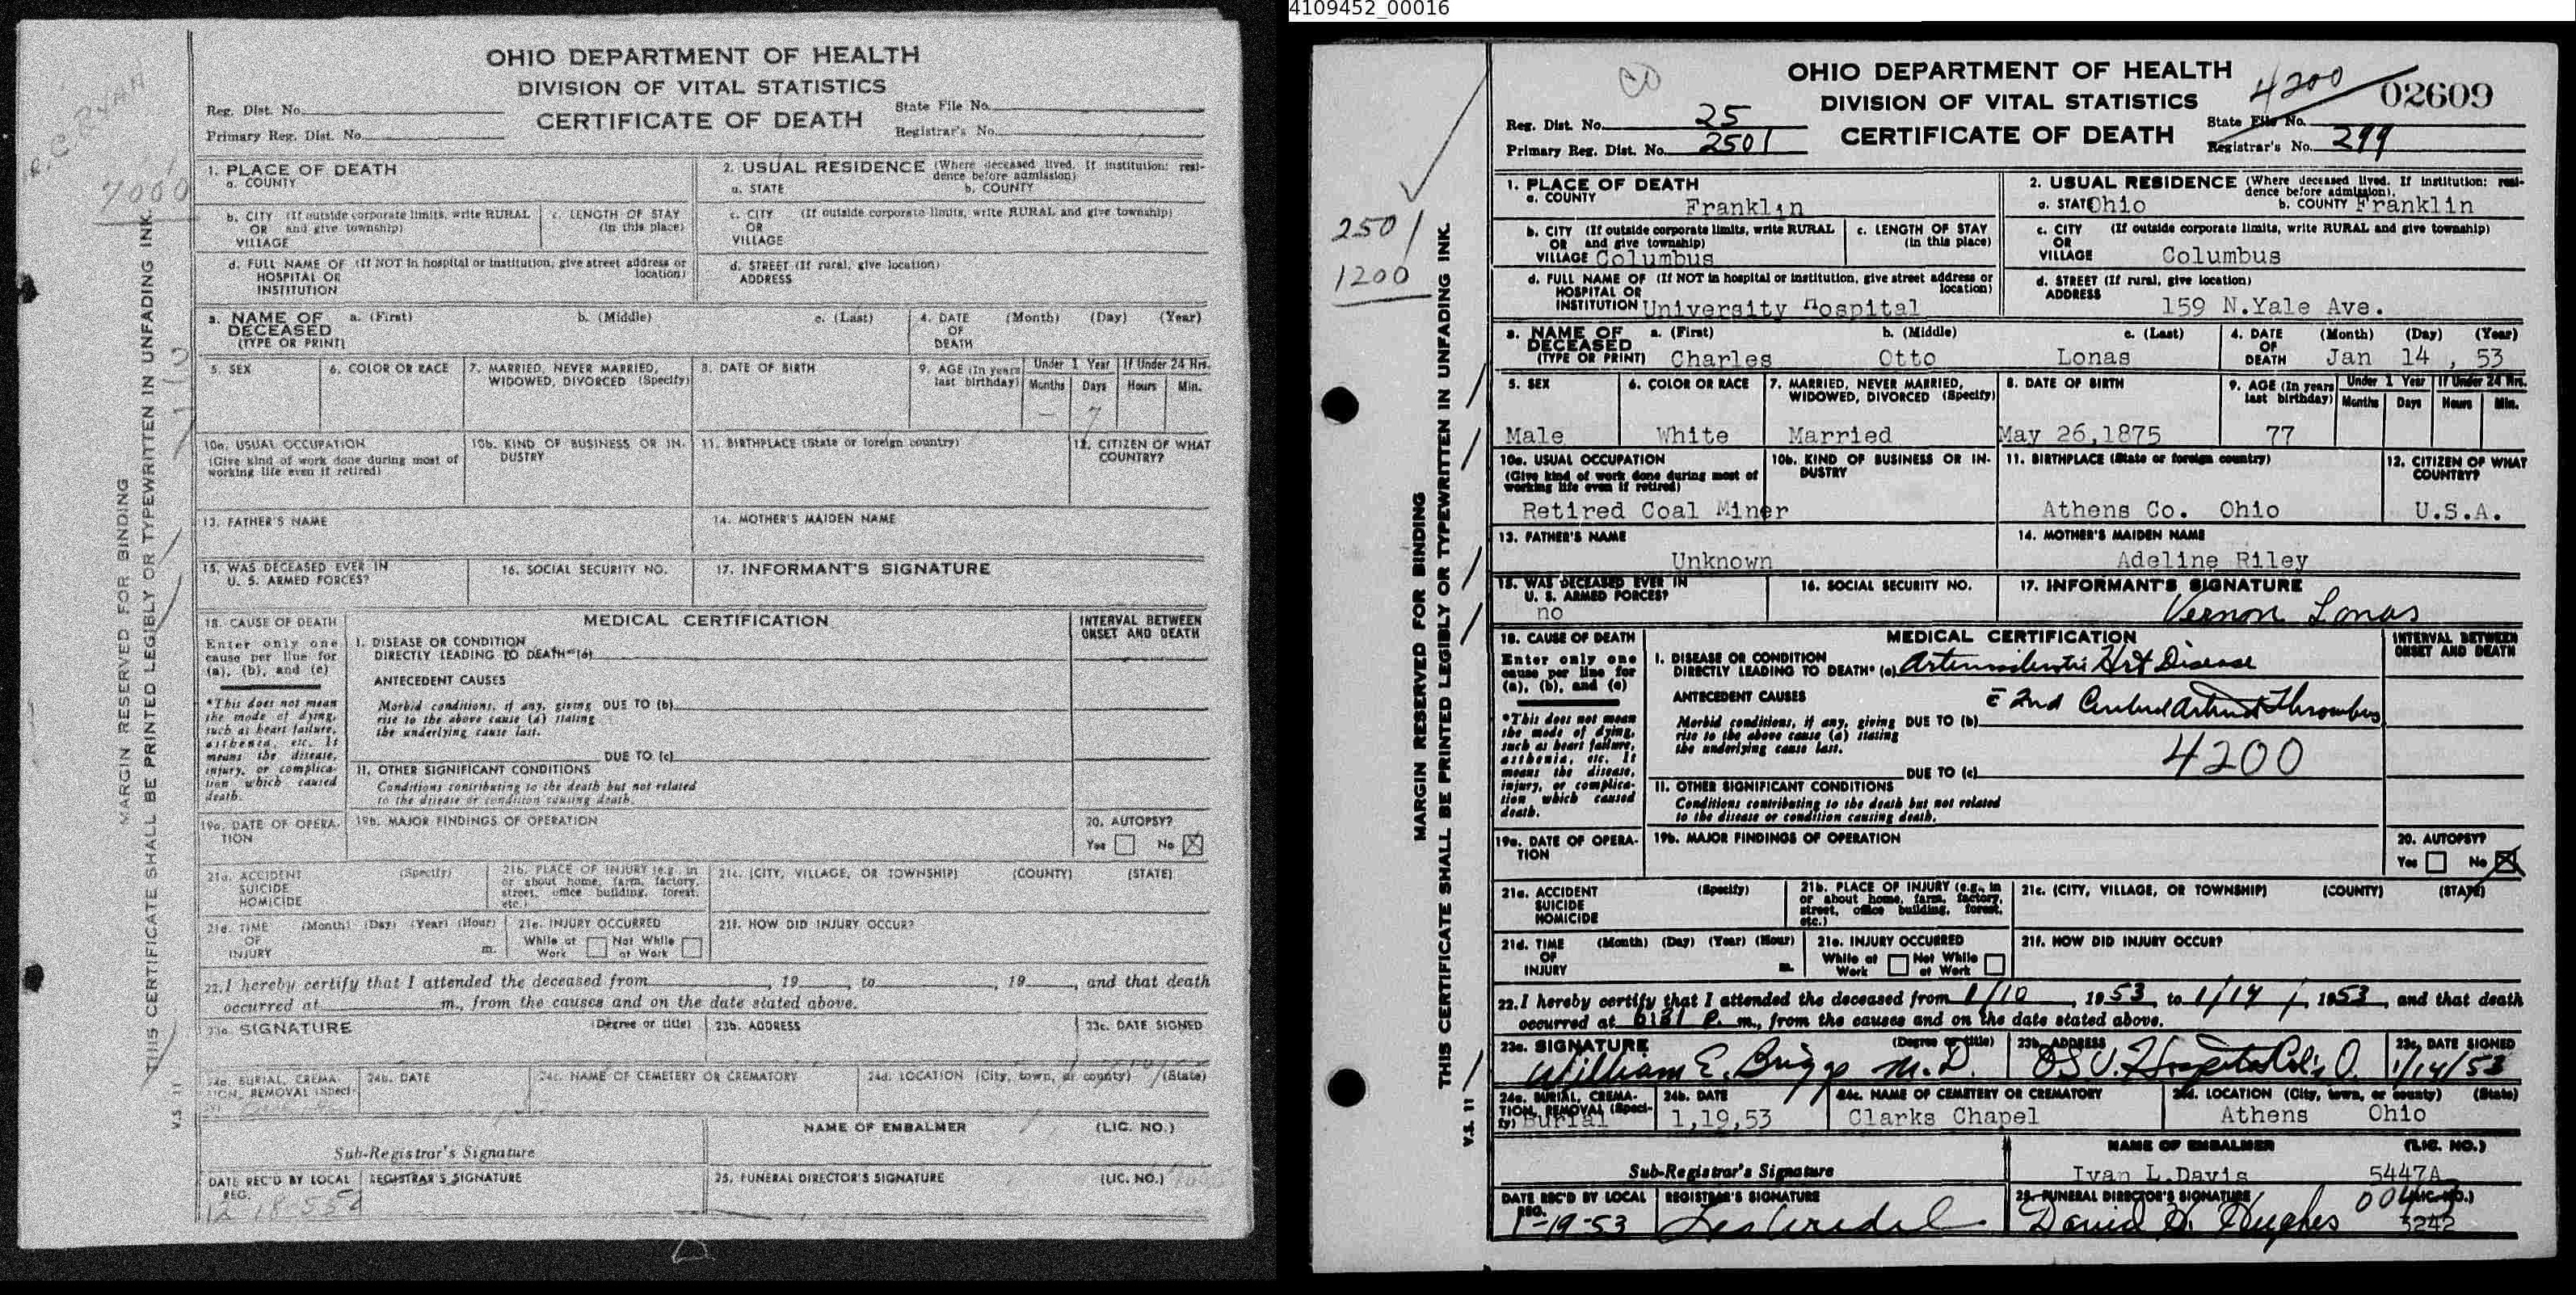 4109452_00016
OHIO DEPARTMENT OF HEALTH
DIVISION OF VITAL STATISTICS
CERTIFICATE OF DEATH
Reg. Dist. No.
Primary Reg. Dist. No.
State File No.
Registrar's No.
7000
MARGIN RESERVED FOR BINDING
THIS CERTIFICATE SHALL BE PRINTED LEGIBLY OR TYPEWRITTEN IN UNFADING INK.
V.S. 11
1. PLACE OF DEATH
a. COUNTY
2. USUAL RESIDENCE (Where deceased lived. If institution: resi-
dence before admission)
a. STATE b. COUNTY
b. CITY (If outside corporate limits, write RURAL
OR and give township)
VILLAGE
c. LENGTH OF STAY
(in this place)
c. CITY (If outside corporate limits, write RURAL and give township)
OR
VILLAGE
d. FULL NAME OF (If NOT in hospital or institution, give street address or
HOSPITAL OR location)
INSTITUTION
d. STREET (If rural, give location)
ADDRESS
3. NAME OF a. (First) b. (Middle) c. (Last)
DECEASED
(TYPE OR PRINT)
4. DATE (Month) (Day) (Year)
OF
DEATH
5. SEX
6. COLOR OR RACE
7. MARRIED, NEVER MARRIED,
WIDOWED, DIVORCED (Specify)
8. DATE OF BIRTH
9. AGE (In years
last birthday)
Under 1 Year
Months Days
If Under 24 Hrs.
Hours Min.
7
10a. USUAL OCCUPATION
(Give kind of work done during most of
working life even if retired)
10b. KIND OF BUSINESS OR IN-
DUSTRY
11. BIRTHPLACE (State or foreign country)
12. CITIZEN OF WHAT
COUNTRY?
13. FATHER'S NAME
14. MOTHER'S MAIDEN NAME
15. WAS DECEASED EVER IN
U. S. ARMED FORCES?
16. SOCIAL SECURITY NO.
17. INFORMANT'S SIGNATURE
18. CAUSE OF DEATH
Enter only one
cause per line for
(a), (b), and (c)
*This does not mean
the mode of dying,
such as heart failure,
asthenia, etc. It
means the disease,
injury, or complica-
tion which caused
death.
MEDICAL CERTIFICATION
INTERVAL BETWEEN
ONSET AND DEATH
I. DISEASE OR CONDITION
DIRECTLY LEADING TO DEATH* (a)
ANTECEDENT CAUSES
Morbid conditions, if any, giving DUE TO (b)
rise to the above cause (a) stating
the underlying cause last.
DUE TO (c)
II. OTHER SIGNIFICANT CONDITIONS
Conditions contributing to the death but not related
to the disease or condition causing death.
19a. DATE OF OPERA-
TION
19b. MAJOR FINDINGS OF OPERATION
20. AUTOPSY?
Yes No X
21a. ACCIDENT (Specify)
SUICIDE
HOMICIDE
21b. PLACE OF INJURY (e.g., in
or about home, farm, factory,
street, office building, forest,
etc.)
21c. (CITY, VILLAGE, OR TOWNSHIP) (COUNTY) (STATE)
21d. TIME (Month) (Day) (Year) (Hour)
OF
INJURY m.
21e. INJURY OCCURRED
While at Not While
Work at Work
21f. HOW DID INJURY OCCUR?
22. I hereby certify that I attended the deceased from , 19 , to , 19 , and that death
occurred at m., from the causes and on the date stated above.
23a. SIGNATURE (Degree or title)
23b. ADDRESS
23c. DATE SIGNED
24a. BURIAL, CREMA-
TION, REMOVAL (Speci-
fy)
24b. DATE
24c. NAME OF CEMETERY OR CREMATORY
24d. LOCATION (City, town, or county) (State)
Sub-Registrar's Signature
NAME OF EMBALMER (LIC. NO.)
DATE REC'D BY LOCAL
REG.
REGISTRAR'S SIGNATURE
25. FUNERAL DIRECTOR'S SIGNATURE (LIC. NO.)
OHIO DEPARTMENT OF HEALTH
DIVISION OF VITAL STATISTICS
CERTIFICATE OF DEATH
Reg. Dist. No. 25
Primary Reg. Dist. No. 2501
4200
02609
State File No.
Registrar's No. 299
2501
1200
MARGIN RESERVED FOR BINDING
THIS CERTIFICATE SHALL BE PRINTED LEGIBLY OR TYPEWRITTEN IN UNFADING INK.
V.S. 11
1. PLACE OF DEATH
a. COUNTY
Franklin
2. USUAL RESIDENCE (Where deceased lived. If institution: resi-
dence before admission).
a. STATE Ohio b. COUNTY Franklin
b. CITY (If outside corporate limits, write RURAL
OR and give township)
VILLAGE Columbus
c. LENGTH OF STAY
(in this place)
c. CITY (If outside corporate limits, write RURAL and give township)
OR
VILLAGE Columbus
d. FULL NAME OF (If NOT in hospital or institution, give street address or
HOSPITAL OR location)
INSTITUTION University Hospital
d. STREET (If rural, give location)
ADDRESS
159 N.Yale Ave.
3. NAME OF a. (First) b. (Middle) c. (Last)
DECEASED
(TYPE OR PRINT) Charles Otto Lonas
4. DATE (Month) (Day) (Year)
OF
DEATH Jan 14 , 53
5. SEX
Male
6. COLOR OR RACE
White
7. MARRIED, NEVER MARRIED,
WIDOWED, DIVORCED (Specify)
Married
8. DATE OF BIRTH
May 26,1875
9. AGE (In years
last birthday)
77
Under 1 Year
Months Days
If Under 24 Hrs.
Hours Min.
10a. USUAL OCCUPATION
(Give kind of work done during most of
working life even if retired)
Retired Coal Miner
10b. KIND OF BUSINESS OR IN-
DUSTRY
11. BIRTHPLACE (State or foreign country)
Athens Co. Ohio
12. CITIZEN OF WHAT
COUNTRY?
U.S.A.
13. FATHER'S NAME
Unknown
14. MOTHER'S MAIDEN NAME
Adeline Riley
15. WAS DECEASED EVER IN
U. S. ARMED FORCES?
no
16. SOCIAL SECURITY NO.
17. INFORMANT'S SIGNATURE
Vernon Lonas
18. CAUSE OF DEATH
Enter only one
cause per line for
(a), (b), and (c)
*This does not mean
the mode of dying,
such as heart failure,
asthenia, etc. It
means the disease,
injury, or complica-
tion which caused
death.
MEDICAL CERTIFICATION
INTERVAL BETWEEN
ONSET AND DEATH
I. DISEASE OR CONDITION
DIRECTLY LEADING TO DEATH* (a) Hrt Disease
ANTECEDENT CAUSES
2nd Thrombus
Morbid conditions, if any, giving DUE TO (b)
rise to the above cause (a) stating
the underlying cause last.
4200
DUE TO (c)
II. OTHER SIGNIFICANT CONDITIONS
Conditions contributing to the death but not related
to the disease or condition causing death.
19a. DATE OF OPERA-
TION
19b. MAJOR FINDINGS OF OPERATION
20. AUTOPSY?
Yes No X
21a. ACCIDENT (Specify)
SUICIDE
HOMICIDE
21b. PLACE OF INJURY (e.g., in
or about home, farm, factory,
street, office building, forest,
etc.)
21c. (CITY, VILLAGE, OR TOWNSHIP) (COUNTY) (STATE)
21d. TIME (Month) (Day) (Year) (Hour)
OF
INJURY m.
21e. INJURY OCCURRED
While at Not While
Work at Work
21f. HOW DID INJURY OCCUR?
22. I hereby certify that I attended the deceased from 1/10 , 1953, to 1/14 , 1953, and that death
occurred at P. m., from the causes and on the date stated above.
23a. SIGNATURE (Degree or title)
William E. Briggs M.D.
23b. ADDRESS
OSU. Hospital Col's O.
23c. DATE SIGNED
1/14/53
24a. BURIAL, CREMA-
TION, REMOVAL (Speci-
fy) Burial
24b. DATE
1,19,53
24c. NAME OF CEMETERY OR CREMATORY
Clarks Chapel
24d. LOCATION (City, town, or county) (State)
Athens Ohio
Sub-Registrar's Signature
NAME OF EMBALMER (LIC. NO.)
Ivan L.Davis 5447A
DATE REC'D BY LOCAL
REG.
1-19-53
REGISTRAR'S SIGNATURE
25. FUNERAL DIRECTOR'S SIGNATURE (LIC. NO.)
David H. Hughes 3242